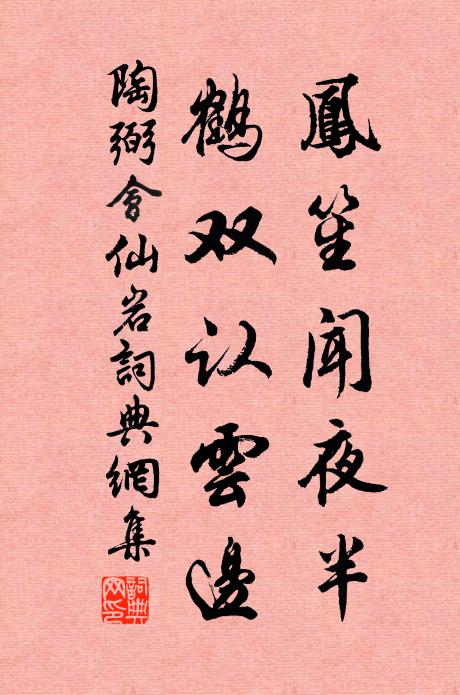 鳳笙闻夜半
鶴双认雲邊
陶弼會仙岩詞典網集
詞典网印